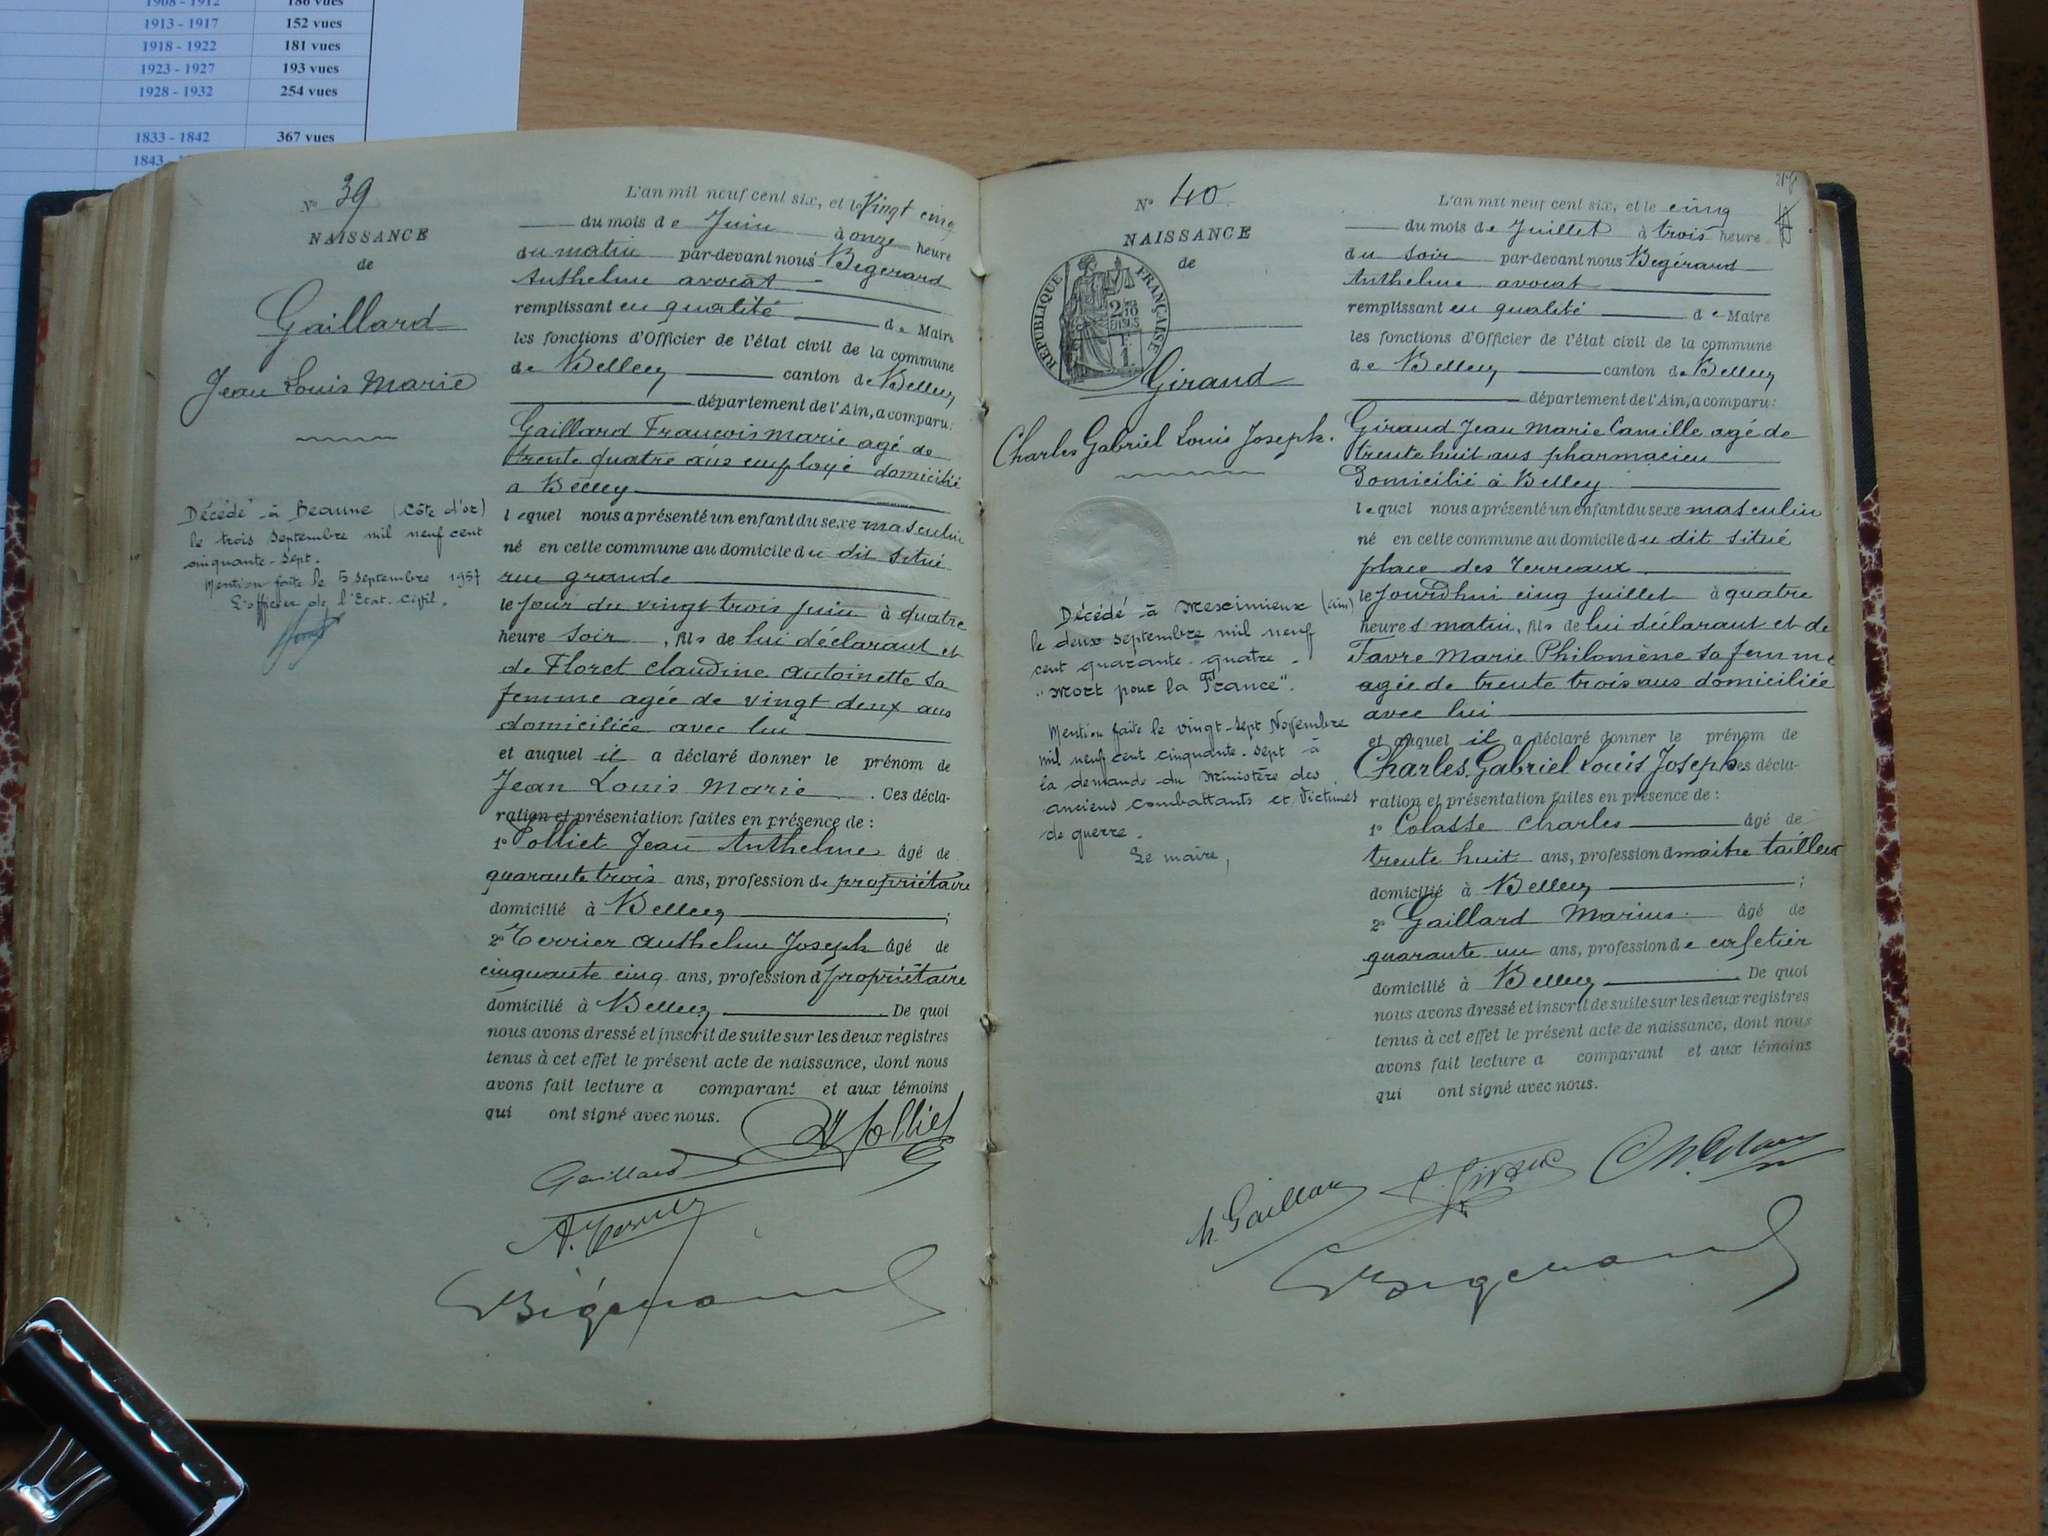 1908 - 1912 186 vues
1913 - 1917 152 vues
1918 - 1922 181 vues
1923 - 1927 193 vues
1928 - 1932 254 vues
1833 - 1842 367 vues
1843
N° 39
NAISSANCE
de
Gaillard
Jean Louis Marie
Décédé à Beaune (Côte d'or)
le trois septembre mil neuf cent
cinquante-sept.
Mention faite le 5 septembre 1957
L'officier de l'Etat-Civil.
L'an mil neuf cent six, et le Vingt cinq
du mois de Juin à onze heure
du matin par-devant nous Begerard
Anthelme avocat
remplissant en qualité de Maire
les fonctions d'Officier de l'état civil de la commune
de Belley canton de Belley
département de l'Ain, a comparu:
Gaillard Francois marie agé de
trente quatre ans employé domicilié
a Belley
lequel nous a présenté un enfant du sexe masculin
né en cette commune au domicile du dit situé
rue grande
le jour du vingt trois juin à quatre
heure soir, fils de lui déclarant et
de Floret claudine antoinette sa
femme agée de vingt deux ans
domiciliée avec lui
et auquel il a déclaré donner le prénom de
Jean Louis Marie. Ces décla-
ration et présentation faites en présence de :
1° Folliet Jean Anthelme âgé de
quarante trois ans, profession de propriétaire
domicilié à Belley ;
2° Terrier anthelme Joseph âgé de
cinquante cinq ans, profession d propriétaire
domicilié à Belley. De quoi
nous avons dressé et inscrit de suite sur les deux registres
tenus à cet effet le présent acte de naissance, dont nous
avons fait lecture a comparant et aux témoins
qui ont signé avec nous.
Folliet
Gaillard
Bégerard
N° 40
NAISSANCE
de
RÉPUBLIQUE FRANÇAISE
Giraud
Charles Gabriel Louis Joseph.
Décédé à Meximieux (ain)
le deux septembre mil neuf
cent quarante-quatre.
"Mort pour la France".
Mention faite le vingt-sept Novembre
mil neuf cent cinquante-sept à
la demande du Ministère des
anciens combattants et Victimes
de guerre.
Le maire,
L'an mil neuf cent six, et le cinq
du mois de Juillet à trois heure
du soir par-devant nous Begérard
Anthelme avocat
remplissant en qualité de Maire
les fonctions d'Officier de l'état civil de la commune
de Belley canton de Belley
département de l'Ain, a comparu:
Giraud Jean Marie Camille agé de
trente huit ans pharmacien
Domicilié à Belley
lequel nous a présenté un enfant du sexe masculin
né en cette commune au domicile du dit situé
place des Terreaux
le jourdhui cinq juillet à quatre
heures matin, fils de lui déclarant et de
Favre Marie Philomène sa femme
agée de trente trois ans domiciliée
avec lui
et auquel il a déclaré donner le prénom de
Charles Gabriel Louis Joseph Ces décla-
ration et présentation faites en présence de :
1° Colasse Charles âgé de
trente huit ans, profession d maitre tailleur
domicilié à Belley ;
2° Gaillard Marius âgé de
quarante un ans, profession de cafetier
domicilié à Belley. De quoi
nous avons dressé et inscrit de suite sur les deux registres
tenus à cet effet le présent acte de naissance, dont nous
avons fait lecture a comparant et aux témoins
qui ont signé avec nous.
M. Gaillard
Begerard